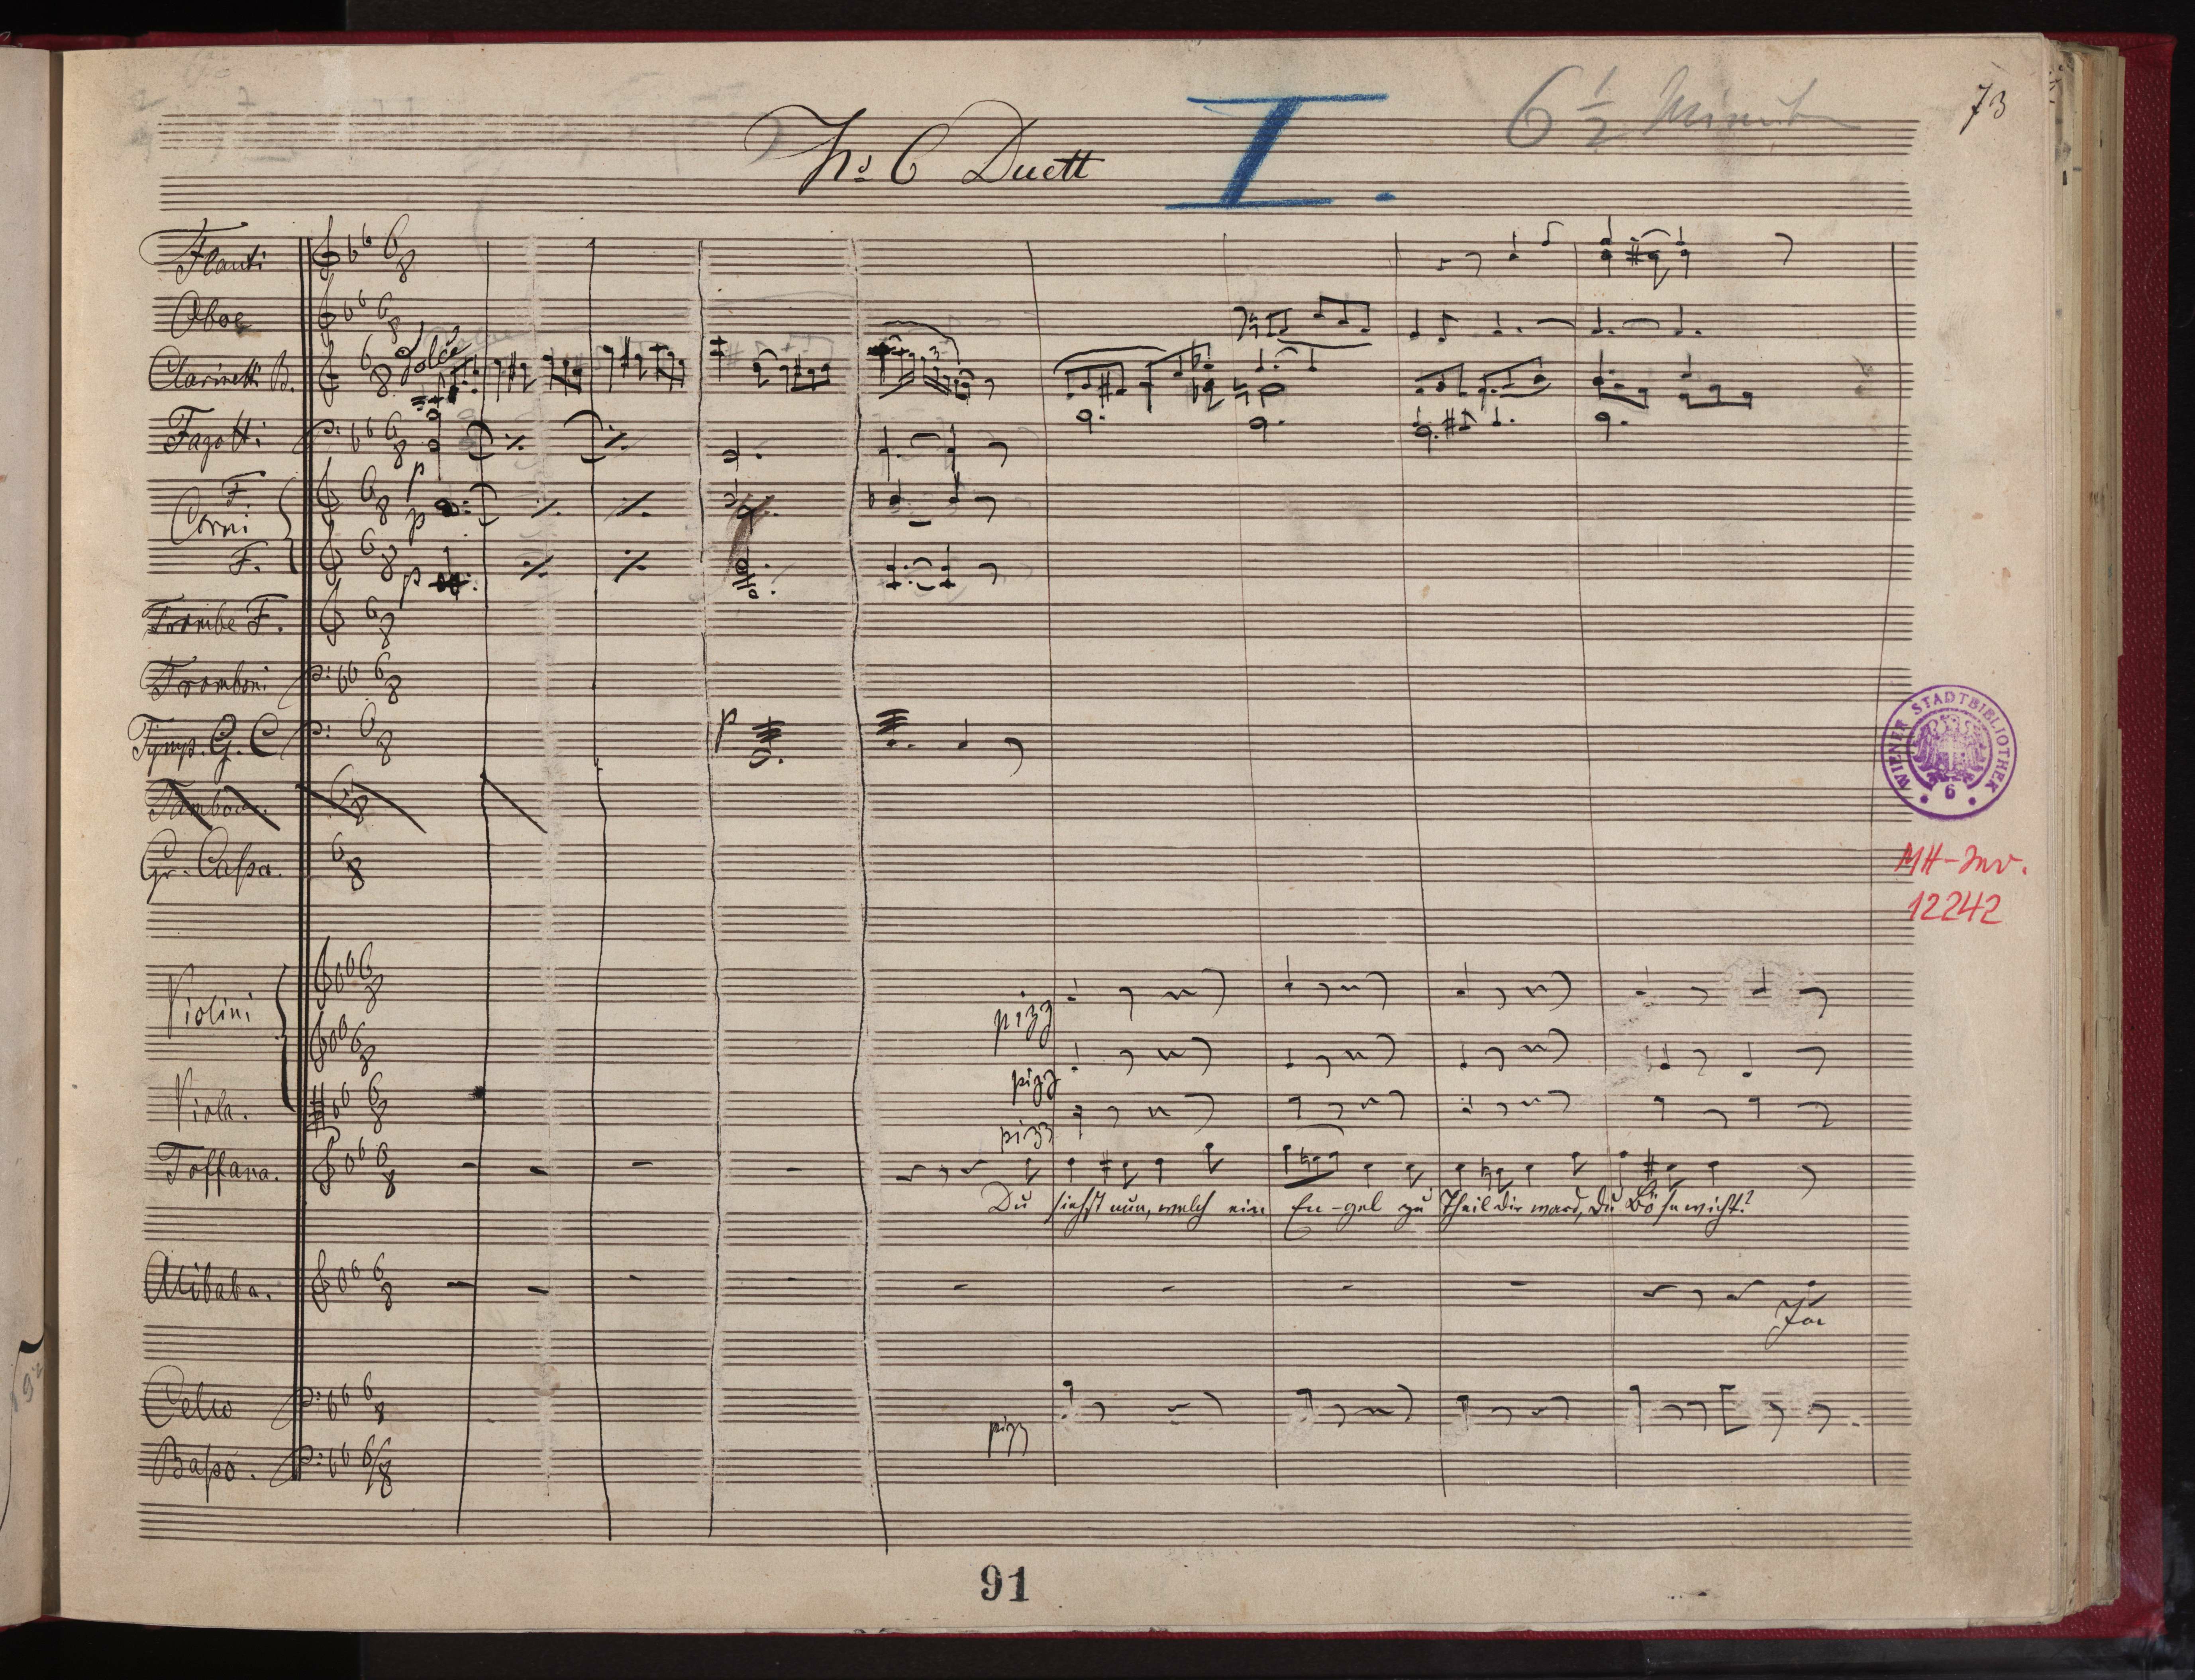 73
6 1/2 Minuten
No 6 Duett I.
Flauti
Oboe
Clarinetti B. dolce
Fagotti p
Corni F p
F. p
Trombe F.
Tromboni
Tymp. G. C p
Tambour.
Gr. Cassa.
Violini pizz
pizz
Viola. pizz
Toffana.
Du siehst nun, welch ein En-gel zu Theil dir ward, du Bösewicht?
Alibaba.
Ja
Cello pizz
Basso.
WIENER STADTBIBLIOTHEK
6
MH-Inv.
12242
91